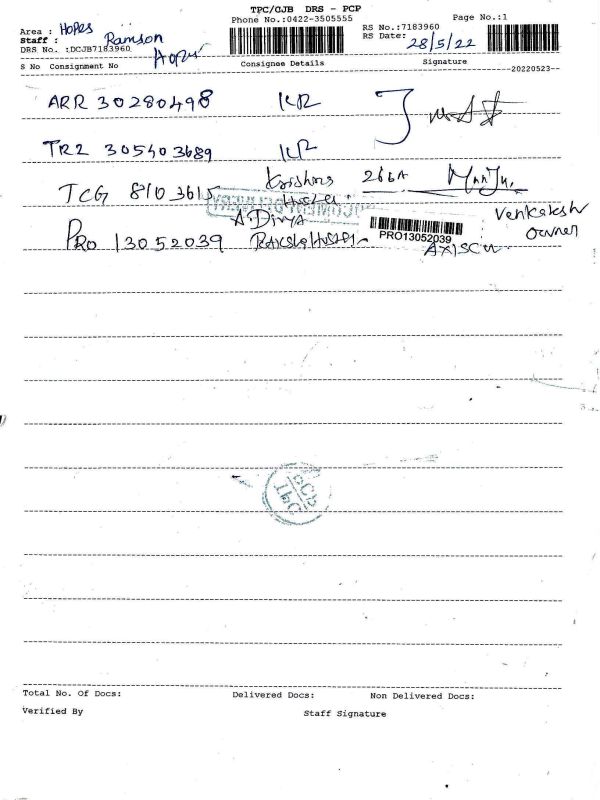 TPC/CJB DRS - PCP
Phone No.:0422-3505555 Page No.:1
Area : Hopes RS No.:7183960
Staff : Ramson RS Date: 28/5/22
DRS No. :DCJB7183960
S No Consignment No Consignee Details Signature
--20220523--
ARR 30280498 KR
TR2 305403689 KR
TCG 8103615 Krishna 266A Manju
A Divya Venkatesh
PRO 13052039 Owner
PRO13052039
Total No. Of Docs: Delivered Docs: Non Delivered Docs:
Verified By Staff Signature